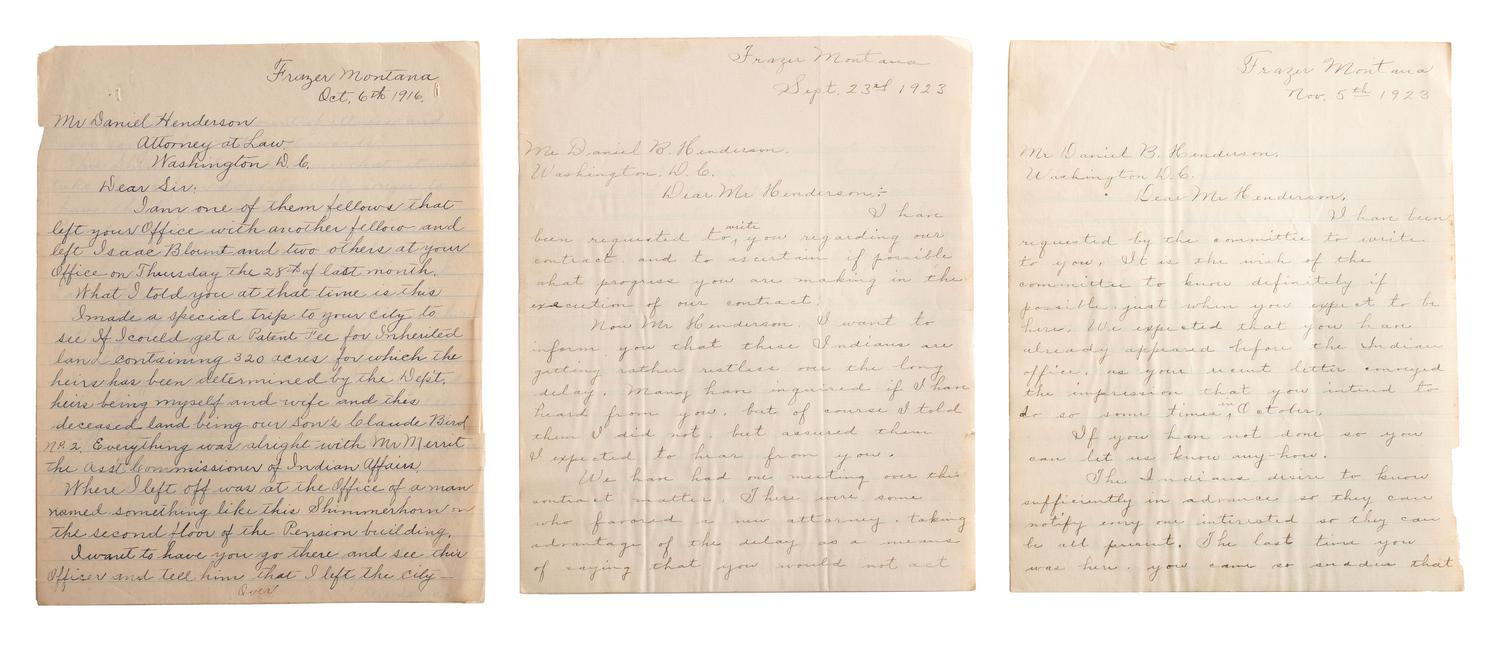 Frazer Montana
Oct, 6th 1916.
Mr Daniel Henderson
Attorney at Law
Washington D.C.
Dear Sir,
I am one of them fellows that
left your Office with another fellow and
left Isaac Blount and two others at your
Office on Thursday the 28th of last month.
What I told you at that time is this
I made a special trip to your city to
see If I could get a Patent Fee for Inherited
land containing 320 acres for which the
heirs has been determined by the Dept.
heirs being myself and wife and this
deceased land being our Son's Claude Bird
No. 2. Everything was alright with Mr Merrit
the Asst Commissioner of Indian Affairs,
Where I left off was at the Office of a man
named something like this Shimmerhorn on
the second floor of the Pension building.
I want to have you go there and see this
Officer and tell him that I left the city
Over
Frazer Montana
Sept. 23rd 1923
Mr Daniel B. Henderson.
Washington, D.C.
Dear Mr Henderson:-
I have
been requested to write you regarding our
contract. and to ascertain if possible
what progress you are making in the
execution of our contract.
Now Mr Henderson. I want to
inform you that these Indians are
getting rather restless over the long
delay. Many have inquired if I have
heard from you. but of course I told
them I did not. but assured them
I expected to hear from you.
We have had one meeting over this
contract matter. There were some
who favored a new attorney. taking
advantage of the delay as a means
of saying that you would not act
Frazer Montana
Nov. 5th 1923
Mr Daniel B. Henderson.
Washington D.C.
Dear Mr Henderson,
I have been
requested by the committee to write
to you. It is the wish of the
committee to know definitely if
possible just when you expect to be
here. We expected that you have
already appeared before the Indian
office. as your recent letter conveyed
the impression that you intend to
do so some times in October.
If you have not done so you
can let us know any-how.
The Indians desire to know
sufficiently in advance so they can
notify every one interested so they can
be all present. The last time you
was here. you came so sudden that